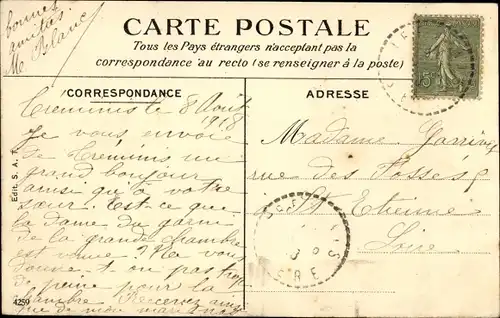 bonnes
amitiés
M Blanc
CARTE POSTALE
Tous les Pays étrangers n'acceptent pas la
correspondance au recto (se renseigner à la poste)
CORRESPONDANCE
ADRESSE
Creminis le 8 Août
1918
Je vous envoie
de Créminis un
grand bonjour
ainsi qu'à votre
sœur. Est-ce que
la dame du garni
de la grande chambre
est venue. Ne vous
donne-t-on pas trop
de peine pour la
chambre Recevez ainsi
que de mon mari
Madame
rue des Fossés 8
St Etienne
Loire
Edit. S. A.
4259
15
ISERE